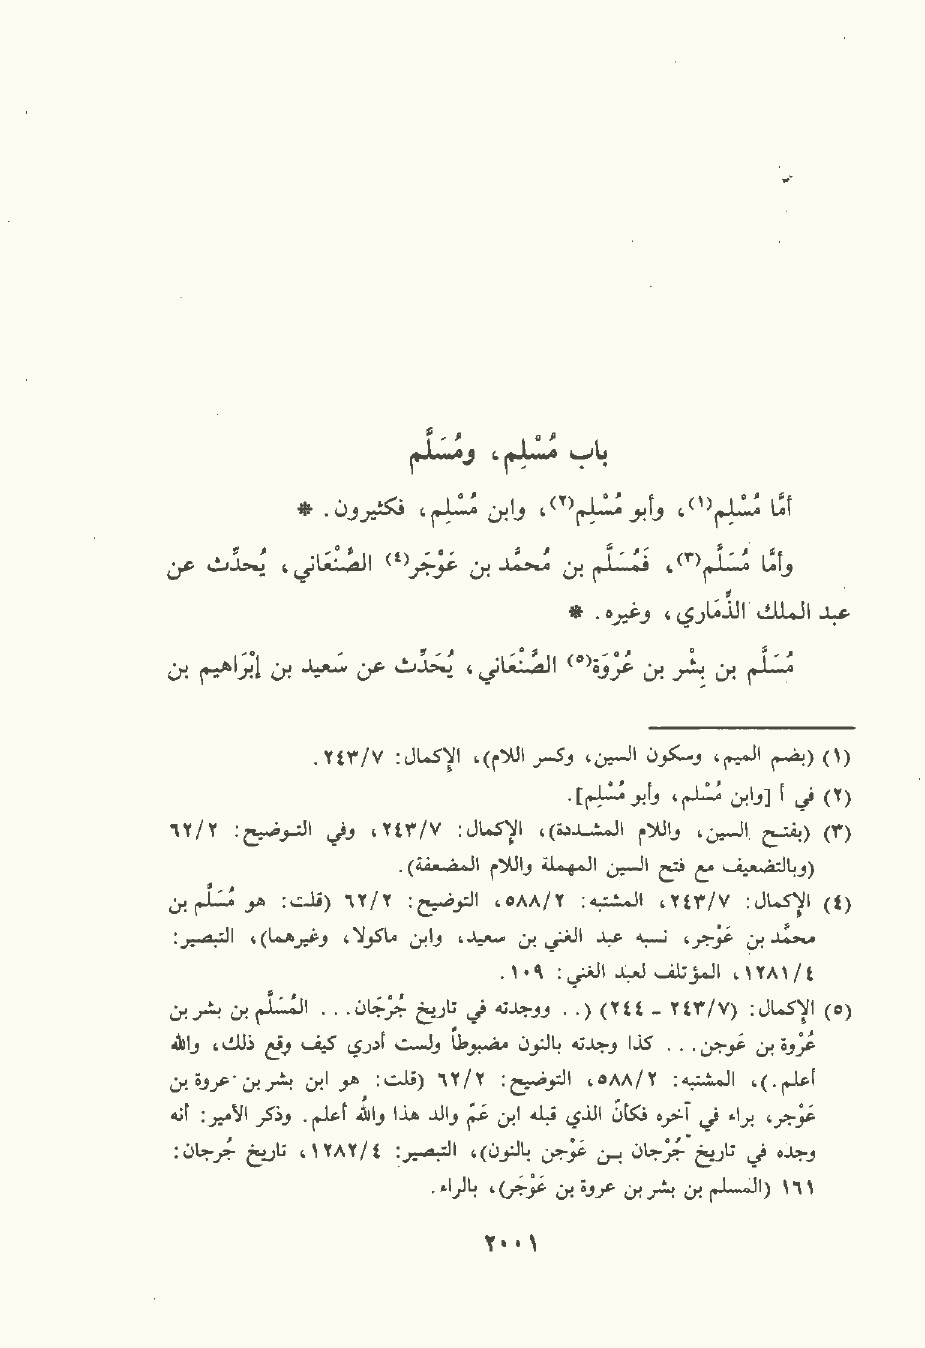 باب مُسْلِم، ومُسَلَّم
أمَّا مُسْلِم(١)، وأبو مُسْلِم(٢)، وابن مُسْلِم، فكثيرون. *
وأمَّا مُسَلَّم(٣)، فَمُسَلَّم بن مُحمَّد بن عَوْجَر(٤) الصَّنْعَاني، يُحدِّث عن
عبد الملك الذِّمَاري، وغيره. *
مُسَلَّم بن بِشْر بن عُرْوَة(٥) الصَّنْعَاني، يُحَدِّث عن سَعيد بن إبْرَاهيم بن
(١) (بضم الميم، وسكون السين، وكسر اللام)، الإكمال: ٢٤٣/٧.
(٢) في أ [وابن مُسْلم، وأبو مُسْلِم].
(٣) (بفتح السين، واللام المشددة)، الإكمال: ٢٤٣/٧، وفي التوضيح: ٦٢/٢
(وبالتضعيف مع فتح السين المهملة واللام المضعفة).
(٤) الإكمال: ٢٤٣/٧، المشتبه: ٥٨٨/٢، التوضيح: ٦٢/٢ (قلت: هو مُسَلَّم بن
محمَّد بن عَوْجر، نسبه عبد الغني بن سعيد، وابن ماكولا، وغيرهما)، التبصير:
١٢٨١/٤، المؤتلف لعبد الغني: ١٠٩.
(٥) الإكمال: (٢٤٣/٧ - ٢٤٤) (.. ووجدته في تاريخ جُرْجَان... المُسَلَّم بن بشر بن
عُرْوة بن عَوجن... كذا وجدته بالنون مضبوطاً ولست أدري كيف وقع ذلك، والله
أعلم.)، المشتبه: ٥٨٨/٢، التوضيح: ٦٢/٢ (قلت: هو ابن بشر بن عروة بن
عَوْجر، براء في آخره فكأنَّ الذي قبله ابن عَمّ والد هذا والله أعلم. وذكر الأمير: أنه
وجده في تاريخ جُرْجان بن عَوْجن بالنون)، التبصير: ١٢٨٢/٤، تاريخ جُرجان:
١٦١ (المسلم بن بشر بن عروة بن عَوْجَر)، بالراء.
٢٠٠١